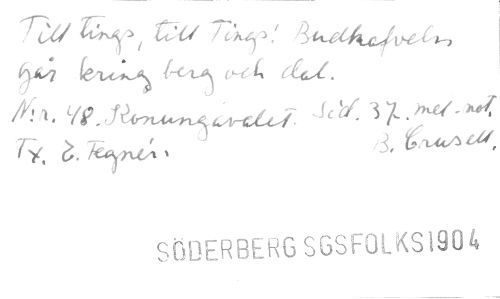 Till tings, till Tings! Budkafveln
går kring berg och dal.
N:r. 48. Konungavalet. Sid. 37. mel. not.
Tx. E. Tegnér. B. Crusell.
SÖDERBERG SGSFOLKS1904